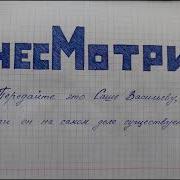 несМотри
Передайте это Саше Васильеву,
он на самом деле существует